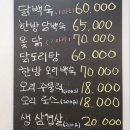 닭백숙 60,000
한방 닭백숙 65,000
옻닭 70,000
닭도리탕 60,000
한방 오리백숙 70,000
오리 주물럭 18,000
오리 로스 18,000
생 삼겹살 20,000